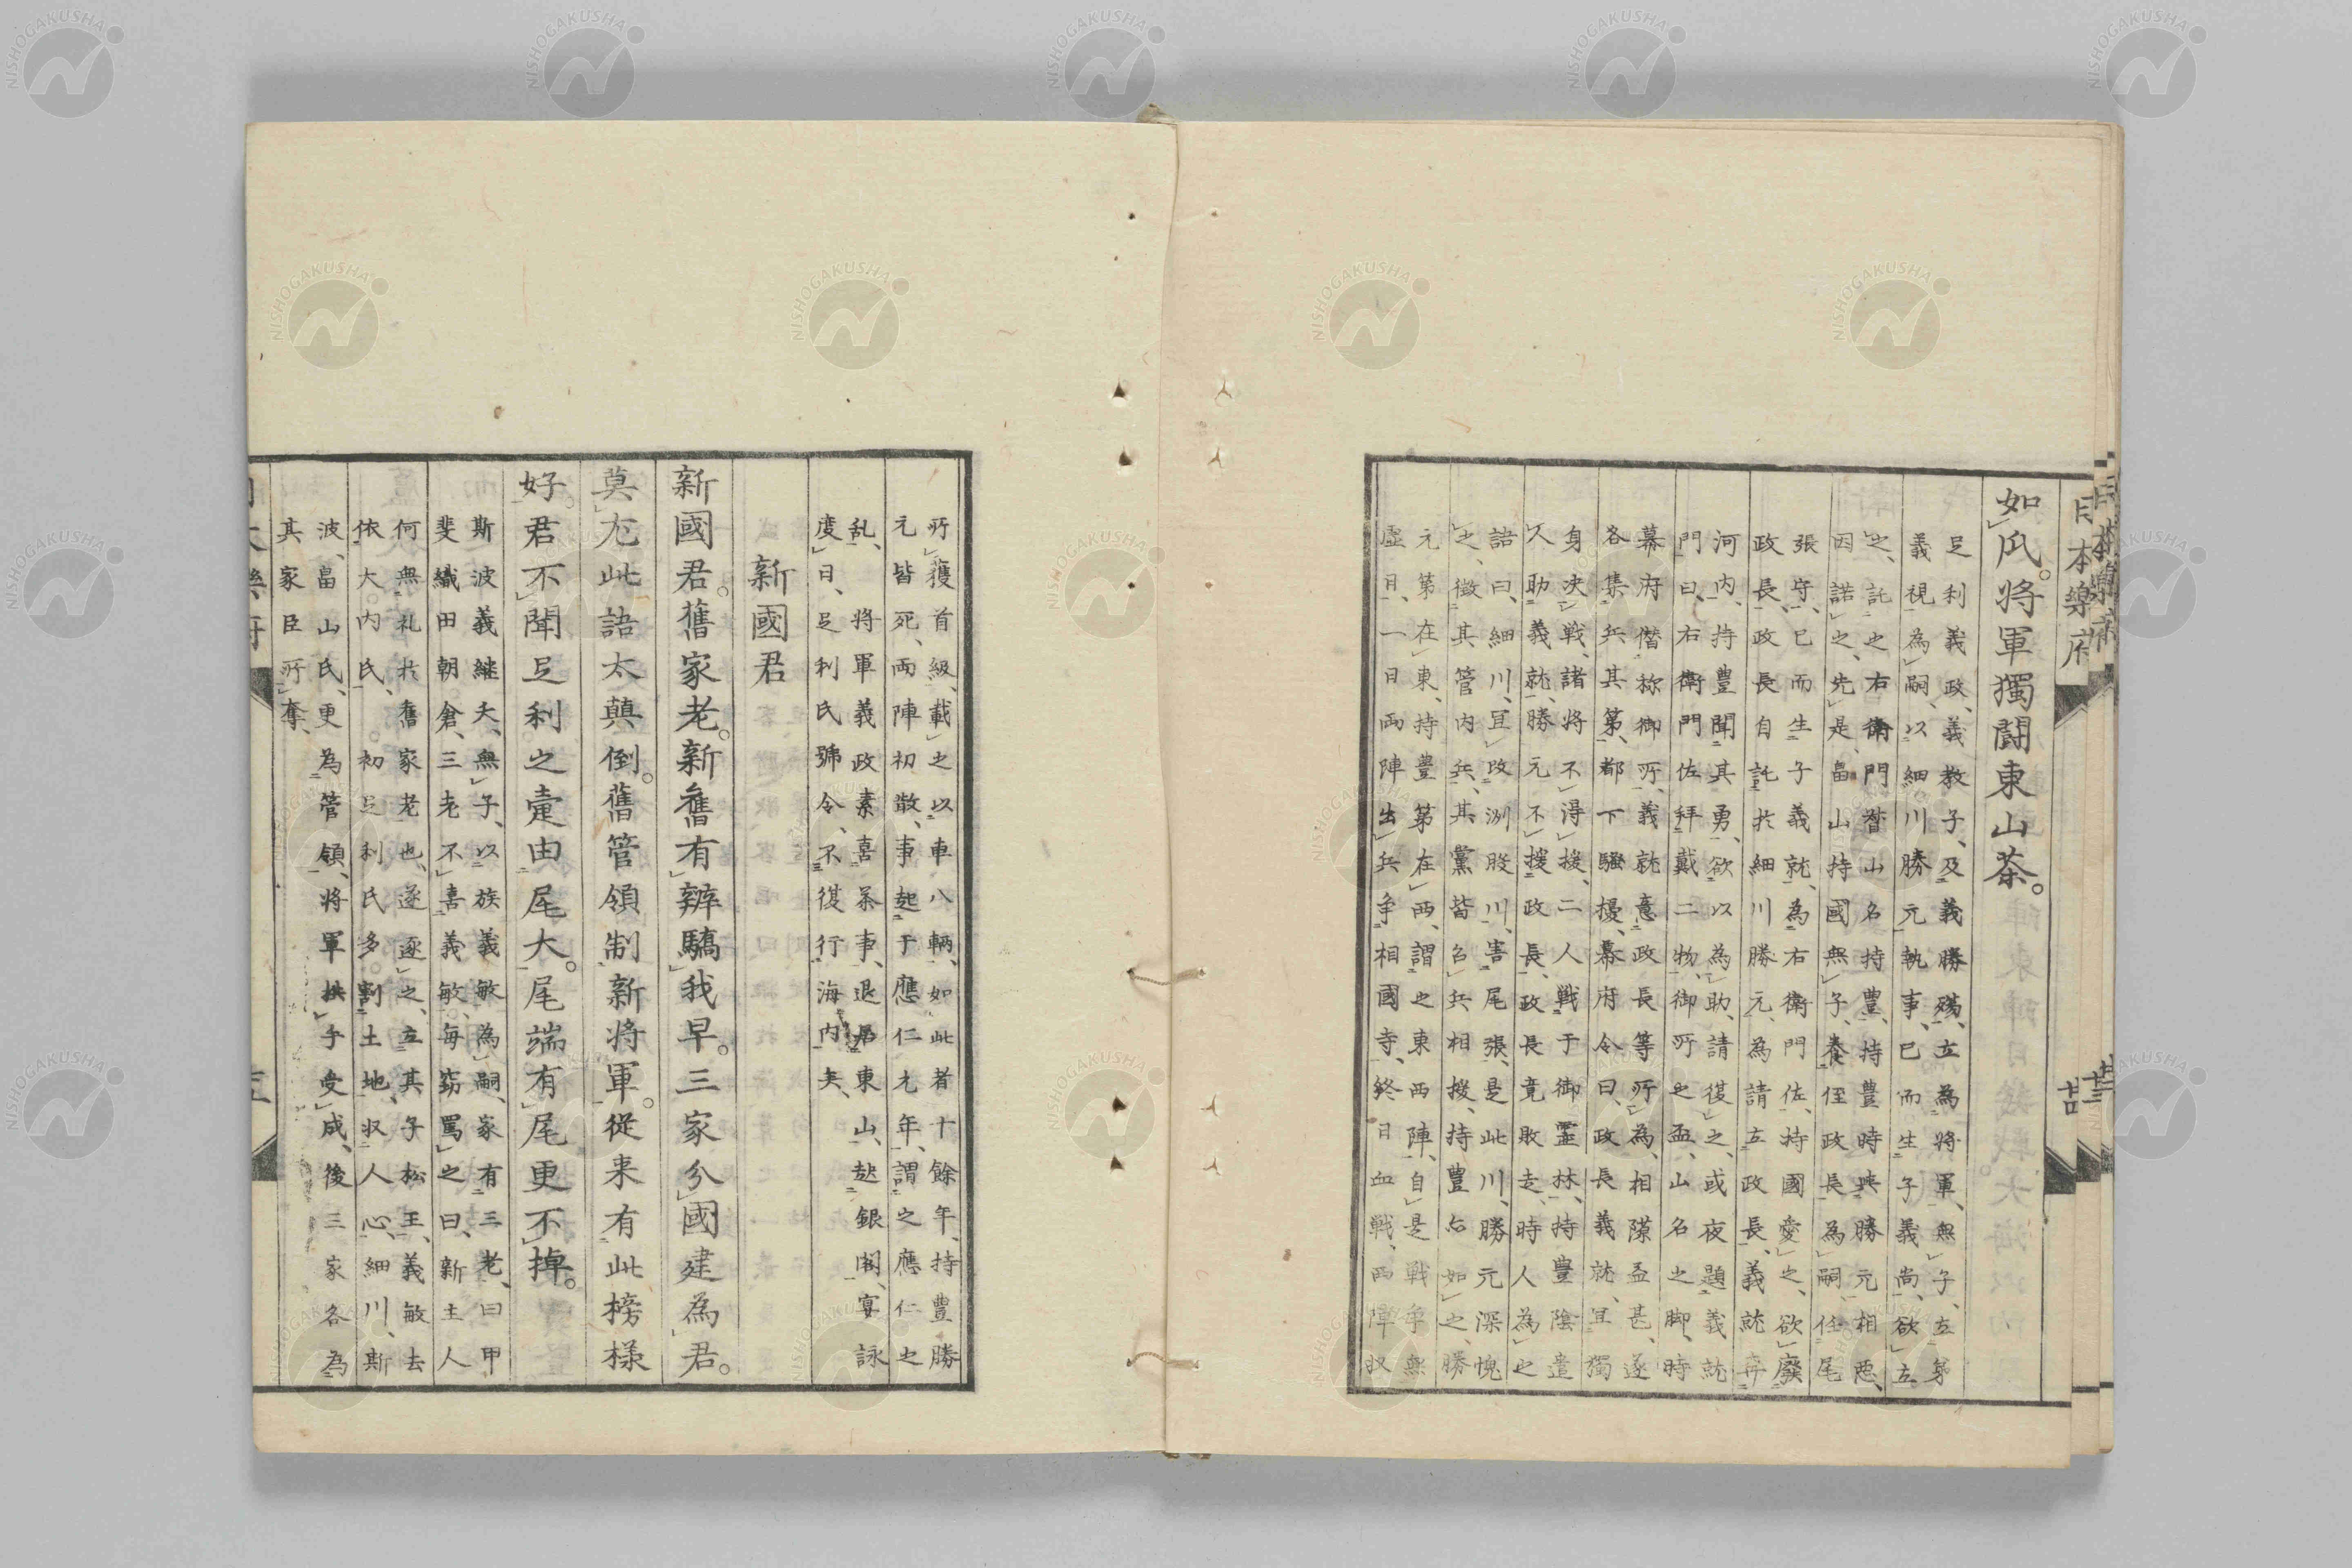 日本樂府
如爪。將軍獨鬪東山茶。
足利義政、義教子、及義勝殤、立為將軍、無子、立弟
義視為嗣、以細川勝元執事、已而生子義尚、欲立
之、託之右衛門督山名持豊、持豊時與勝元相惡、
因諾之、先是、畠山持國無子、養侄政長為嗣、任尾
張守、已而生子義就、為右衛門佐、持國愛之、欲廢
政長、政長自託於細川勝元、為請立政長、義就奔
河内、持豊聞其勇、欲以為助、請復之、或夜題義就
門曰、右衛門佐拜戴二物、御所之盃、山名之脚、時
幕府僭称御所、義就意政長等所為、相隙益甚、遂
各集兵其第、都下騷擾、幕府令曰、政長義就、宜獨
身决戰、諸將不得援、二人戰于御霊林、持豊陰遣
人助義就、勝元不援政長、政長竟敗走、時人為之
語曰、細川、宜改渕股川、害尾張、是此川、勝元深愧
之、徴其管内兵、其黨皆召兵相援、持豊亦如之、勝
元第在東、持豊第在西、謂之東西陣、自是戰爭無
虚日、一日兩陣出兵爭相國寺、終日血戰、西陣収
所獲首級、載之以車八輌、如此者十餘年、持豊勝
元皆死、兩陣初散、事起于應仁元年、謂之應仁之
乱、將軍義政素喜茶事、退居東山、起銀閣、宴詠
度日、足利氏號令、不復行海内矣、
新國君
新國君。舊家老。新舊有辨驕我早。三家分國建為君。
莫尤此語太顛倒。舊管領制新將軍。從来有此榜樣
好。君不聞足利之壷由尾大。尾端有尾更不掉。
斯波義継夭、無子、以族義敏為嗣、家有三老、曰甲
斐織田朝倉、三老不喜義敏、毎竊罵之曰、新主人
何無礼於舊家老也、遂逐之、立其子松王、義敏去
依大内氏、初足利氏多割土地、収人心、細川、斯
波、畠山氏、更為管領、將軍拱手受成、後三家各為
其家臣所奪、